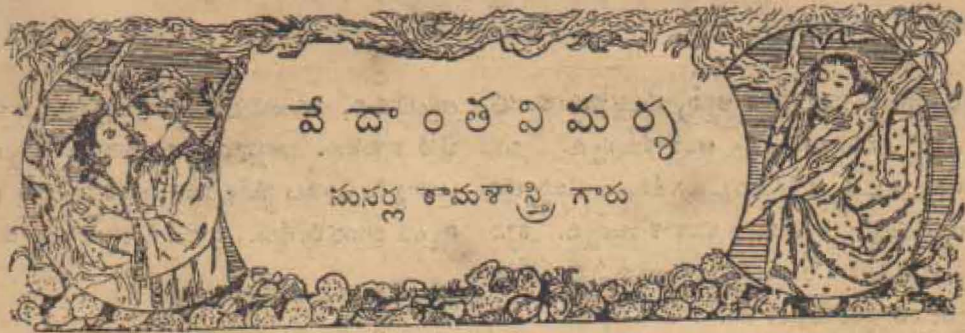 వే దాం త వి మ ర్శ
సుసర్ల రామశాస్త్రి గారు